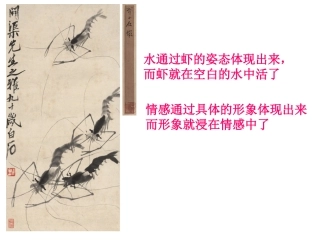 水通过虾的姿态体现出来，
而虾就在空白的水中活了
情感通过具体的形象体现出来
而形象就浸在情感中了
开渠先生之雅九十岁白石